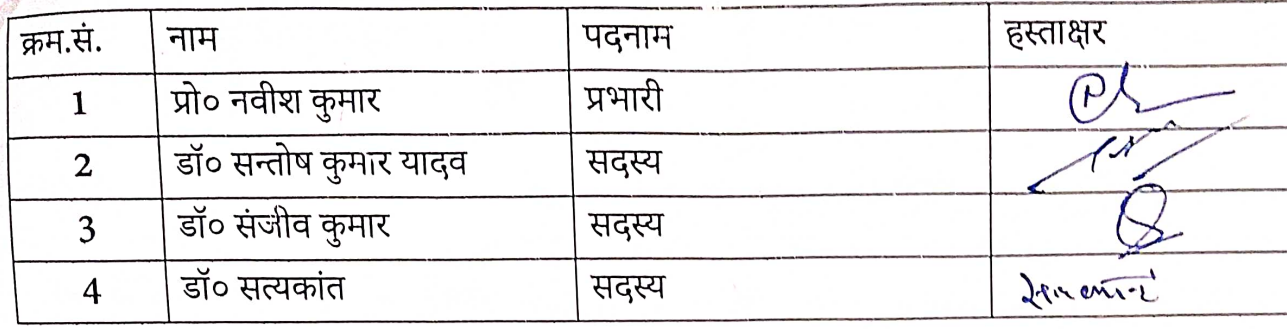 क्रम.सं. नाम पदनाम हस्ताक्षर
1 प्रो० नवीश कुमार प्रभारी
2 डॉ० सन्तोष कुमार यादव सदस्य
3 डॉ० संजीव कुमार सदस्य
4 डॉ० सत्यकांत सदस्य